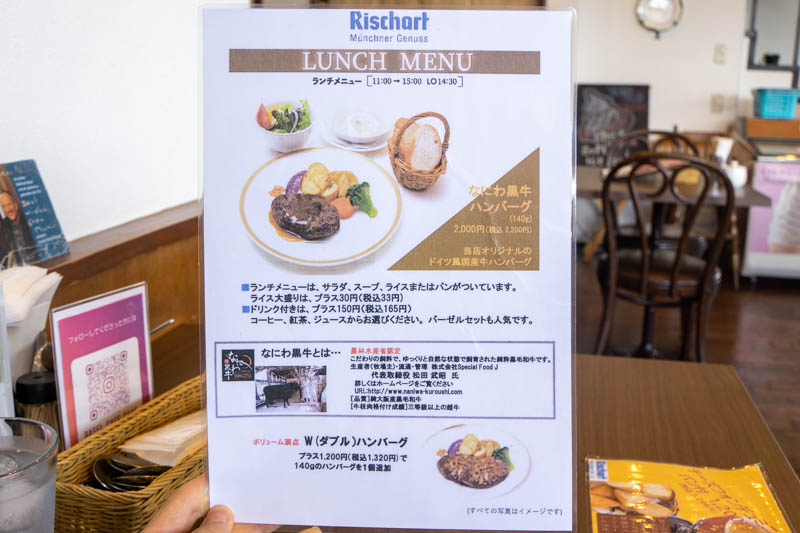 Rischart
Münchner Genuss
LUNCH MENU
ランチメニュー [11:00→15:00 LO14:30]
なにわ黒牛
ハンバーグ
(140g)
2,000円(税込 2,200円)
当店オリジナルの
ドイツ風国産牛ハンバーグ
■ランチメニューは、サラダ、スープ、ライスまたはパンがついています。
ライス大盛りは、プラス30円(税込33円)
■ドリンク付きは、プラス150円(税込165円)
コーヒー、紅茶、ジュースからお選びください。 バーゼルセットも人気です。
なにわ黒牛とは…
農林水産省認定
こだわりの飼料で、ゆっくりと自然な状態で飼育された純粋黒毛和牛です。
生産者(牧場主)・流通・管理 株式会社Special Food J
代表取締役 松田 武昭 氏
詳しくはホームページをご覧ください
URL:http://www.naniwa-kuroushi.com
[品質]純大阪産黒毛和牛
[牛枝肉格付け成績]三等級以上の雌牛
ボリューム満点 W(ダブル)ハンバーグ
プラス1,200円(税込1,320円)で
140gのハンバーグを1個追加
(すべての写真はイメージです)
フォローしてくださった方には
Rischart